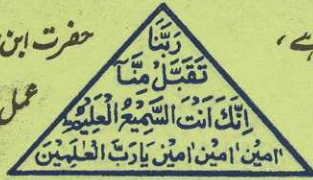 ہے،
حضرت ابن
عمل
رَبَّنَا
تَقَبَّلْ مِنَّآ
اِنَّكَ اَنْتَ السَّمِيْعُ الْعَلِيْمُ
اٰمِيْن اٰمِيْن اٰمِيْن يَارَبَّ الْعٰلَمِيْنَ